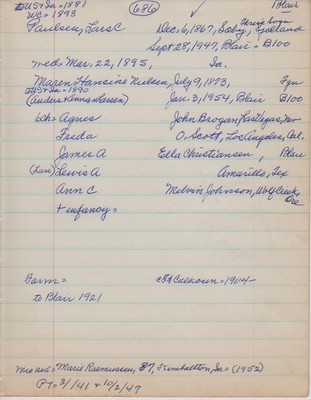 to US + Ia = 1881 (686) Blair
Wa = 1893
Paulsen, Lars C Dec, 6, 1867, Soby,
Sept 28, 1947, Blair = B100
med. Mar. 22, 1895, Ia.
Maren Hansine Nielsen, July 9, 1873, Fyn
to US + Ia = 1890
(Anders + Anna Larsen) Jan. 3, 1954, Blair B100
6ch = Agnes John Brogan, Las Vegas, Nev
Freda O. Scott, Los Angeles, Cal.
James A Ella Christiansen, Blair
(Lars) Lewis A Amarillo, Tex
Ann C Melvin Johnson, Wolf Creek,
Ore
+ infancy =
Farm = Calhoun = 1904 -
to Blair 1921
Mrs sis = Marie Rasmussen, 87, Kimballton, Ia = (1952)
PT = 3/1/41 + 10/2/47